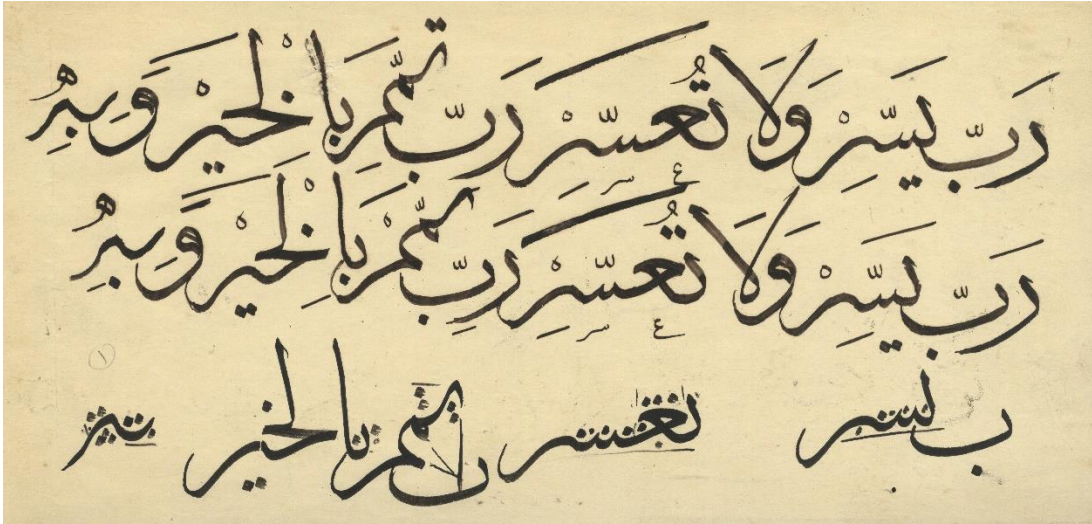 رَبِّ يَسِّرْ وَلَا تُعَسِّرْ رَبِّ تَمِّمْ بِالْخَيْرْ
س ع
رَبِّ يَسِّرْ وَلَا تُعَسِّرْ رَبِّ تَمِّمْ بِالْخَيْرْ
س ع
١
ب يسر تعسر تمم بالخير